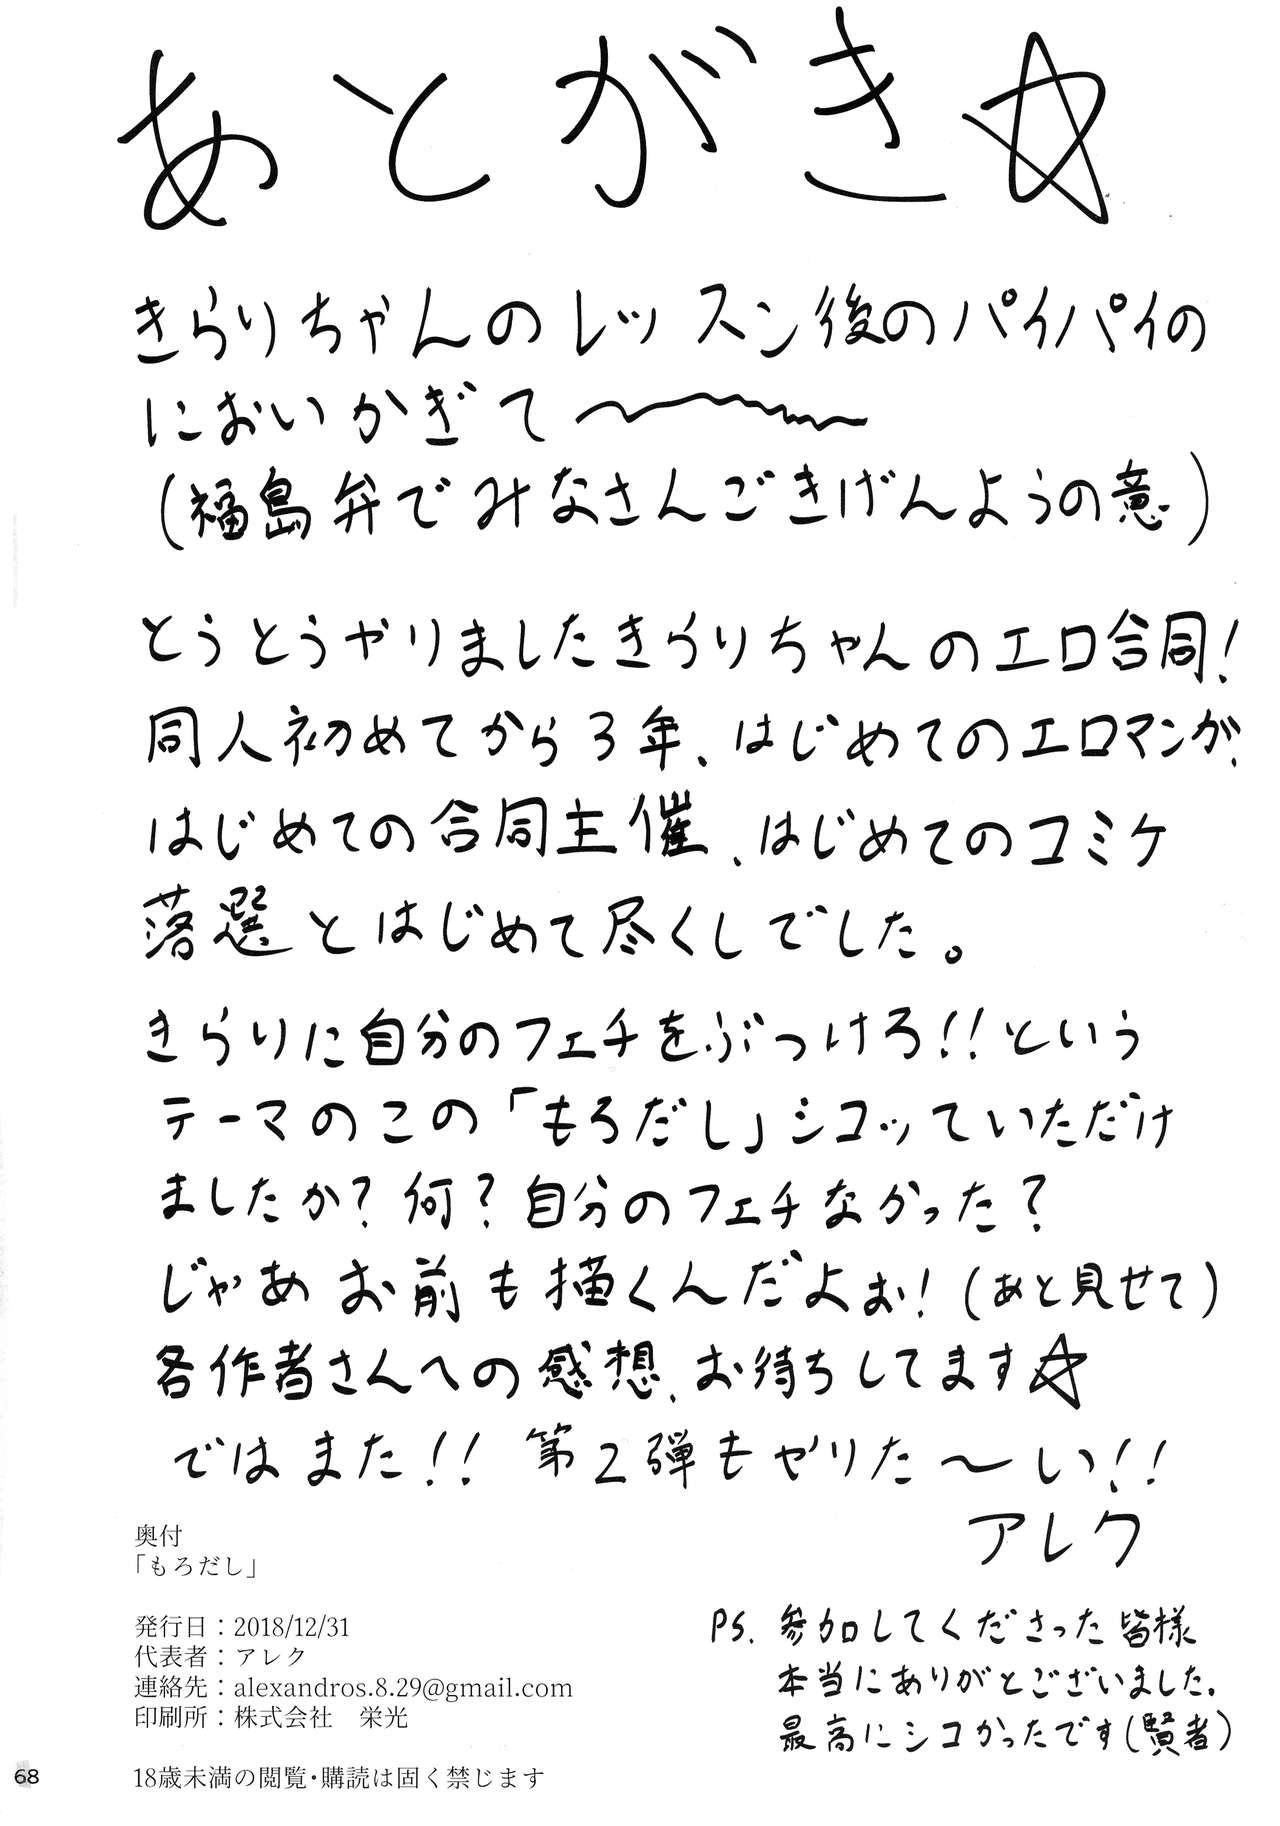 あとがき☆
きらりちゃんのレッスン後のパイパイの
においかぎて〜〜
(福島弁でみなさんごきげんようの意)
とうとうやりましたきらりちゃんのエロ合同!
同人初めてから3年、はじめてのエロマンガ、
はじめての合同主催、はじめてのコミケ
落選とはじめて尽くしでした。
きらりに自分のフェチをぶつけろ!!という
テーマのこの「もろだし」シコッていただけ
ましたか?何?自分のフェチなかった?
じゃあお前も描くんだよぉ!(あと見せて)
各作者さんへの感想、お待ちしてます☆
ではまた!!第2弾もやりた〜い!!
アレク
PS. 参加してくださった皆様
本当にありがとございました。
最高にシコかったです(賢者)
奥付
「もろだし」
発行日:2018/12/31
代表者:アレク
連絡先:alexandros.8.29@gmail.com
印刷所:株式会社　栄光
18歳未満の閲覧・購読は固く禁じます
68